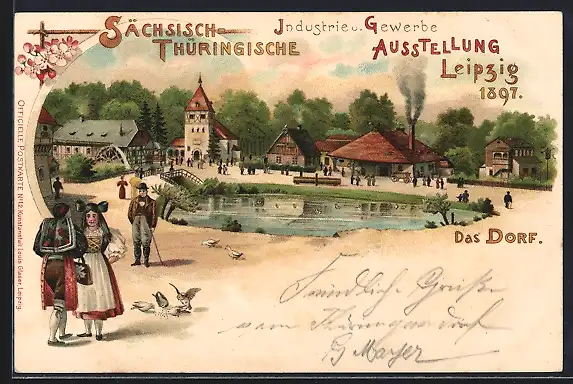 SÄCHSISCH-
THÜRINGISCHE
Industrie u. Gewerbe
AUSSTELLUNG
Leipzig
1897.
Das DORF.
Officielle Postkarte No 12 Kunstanstalt Louis Glaser, Leipzig.
Freundliche Grüße
vom Thüringer dorf
Mayer